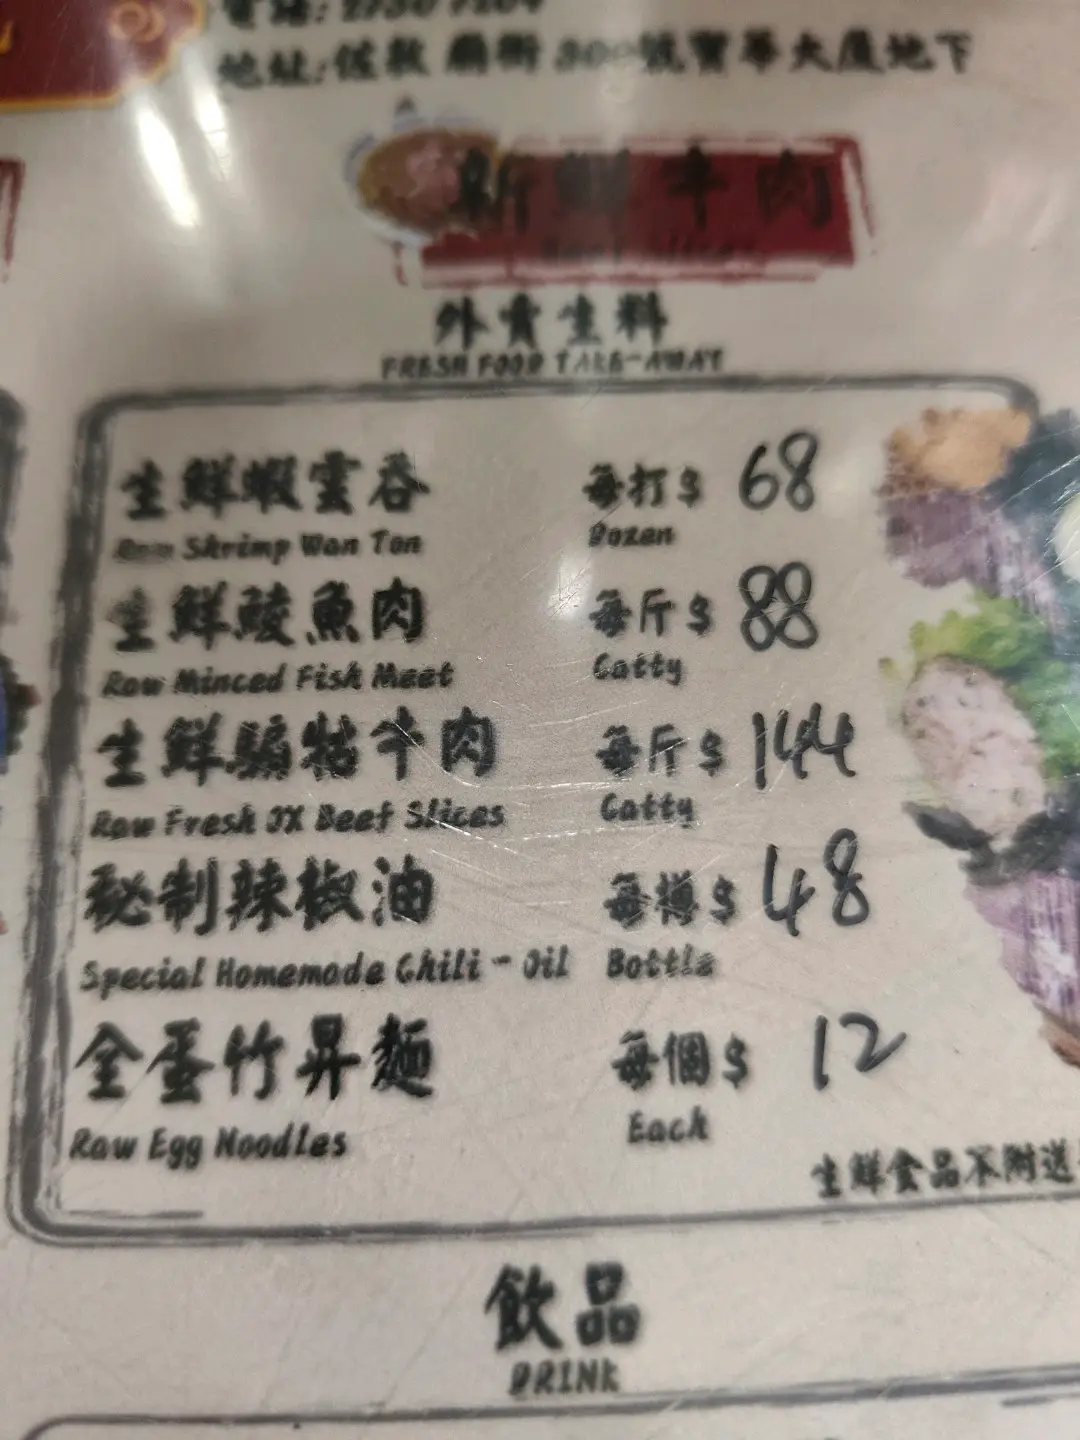 地址:佐敦 廟街 300號寶華大廈地下
新鮮牛肉
外賣生料
FRESH FOOD TAKE-AWAY
生鮮蝦雲吞 每打 $ 68
Raw Shrimp Wan Ton Dozen
生鮮鯪魚肉 每斤 $ 88
Raw Minced Fish Meet Catty
生鮮騸牯牛肉 每斤 $ 144
Raw Fresh JX Beef Slices Catty
秘制辣椒油 每樽 $ 48
Special Homemade Chili-Oil Bottle
全蛋竹昇麵 每個 $ 12
Raw Egg Noodles Each
生鮮食品不附送
飲品
DRINK